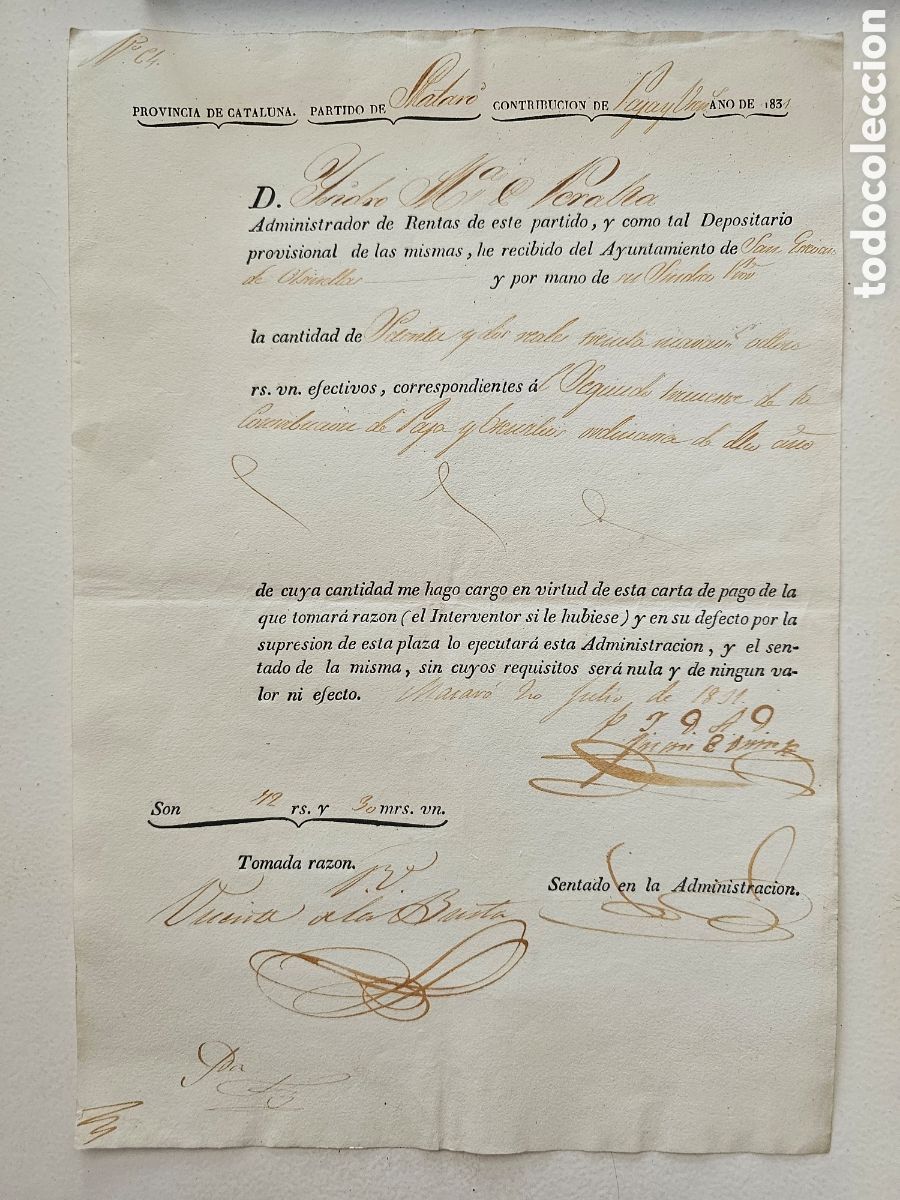 Nº 64.
PROVINCIA DE CATALUÑA. PARTIDO DE Mataró CONTRIBUCION DE Paja y AÑO DE 1831
D. Isidro Mª de Peralta
Administrador de Rentas de este partido, y como tal Depositario
provisional de las mismas, he recibido del Ayuntamiento de San
de y por mano de su Sindico
la cantidad de y dos reales treinta
rs. vn. efectivos, correspondientes á l Segundo de la
Contribucion de Paja y Utensilios ordinaria de dho año
de cuya cantidad me hago cargo en virtud de esta carta de pago de la
que tomará razon (el Interventor si le hubiese) y en su defecto por la
supresion de esta plaza lo ejecutará esta Administracion, y el sen-
tado de la misma, sin cuyos requisitos será nula y de ningun va-
lor ni efecto. Mataró 20 Julio de 1831.
Son rs. y 30 mrs. vn.
Tomada razon.
Sentado en la Administracion.
Vicente de la
todocoleccion